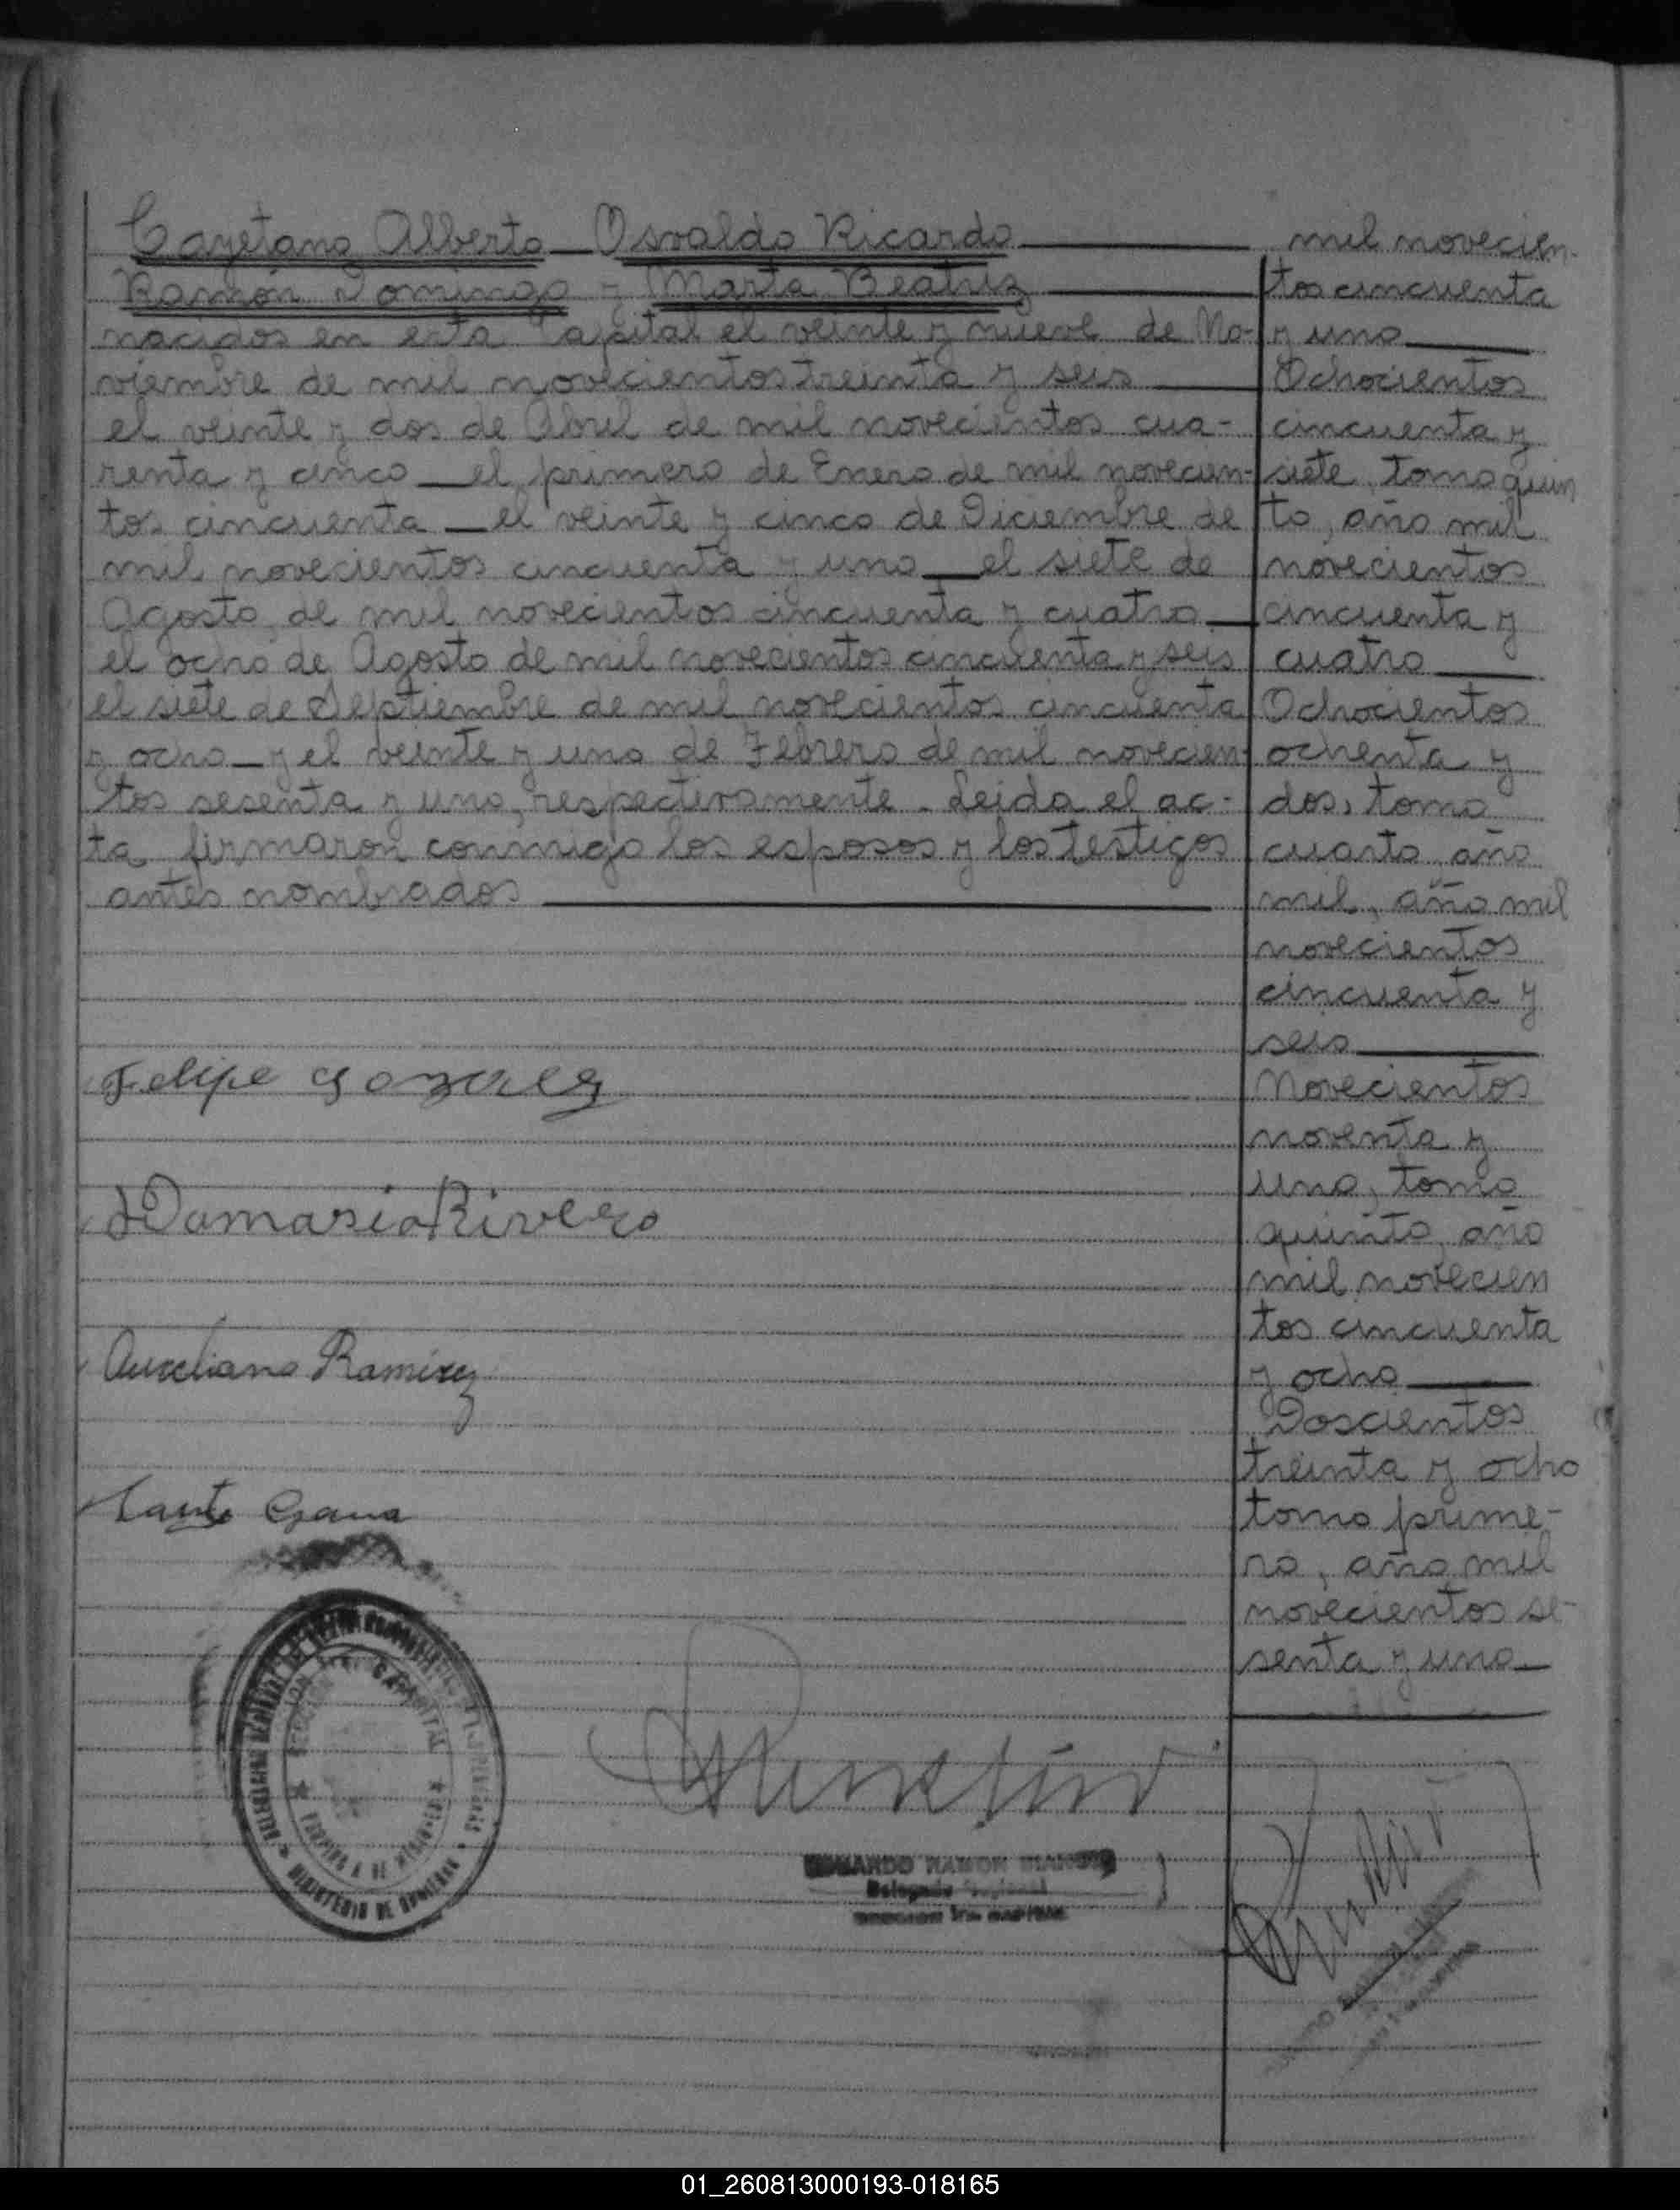 Cayetano Alberto Osvaldo Ricardo
Ramón Domingo y Marta Beatriz
nacidos en esta Capital el veinte y nueve de No-
viembre de mil novecientos treinta y seis
el veinte y dos de Abril de mil novecientos cua-
renta y cinco el primero de Enero de mil novecien-
tos cincuenta el veinte y cinco de Diciembre de
mil novecientos cincuenta y uno el siete de
Agosto de mil novecientos cincuenta y cuatro
el ocho de Agosto de mil novecientos cincuenta y seis
el siete de Septiembre de mil novecientos cincuenta
y ocho y el veinte y uno de Febrero de mil novecien-
tos sesenta y uno, respectivamente. Leida el ac-
ta firmaron conmigo los esposos y los testigos
antes nombrados
Felipe Gonzalez
Damasia Rivero
Aureliano Ramirez
mil novecien-
tos cincuenta
y uno
Ochocientos
cincuenta y
siete, tomo quin
to, año mil
novecientos
cincuenta y
cuatro
Ochocientos
ochenta y
dos, tomo
cuarto año
mil, año mil
novecientos
cincuenta y
seis
Novecientos
noventa y
uno, tomo
quinto, año
mil novecien
tos cincuenta
y ocho
Doscientos
treinta y ocho
tomo prime-
ro, año mil
novecientos se-
senta y uno
MINISTERIO DE GOBIERNO
RAMON
Delegado
01_260813000193-018165